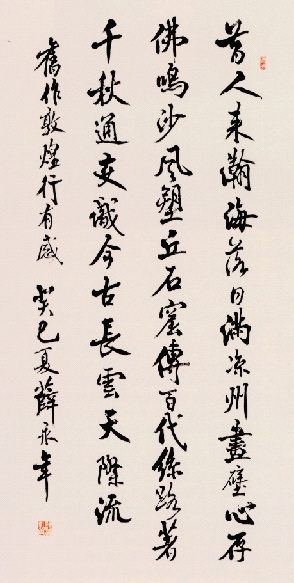 昔人来瀚海落日满凉州畫壁心存
佛鳴沙风塑丘石窟傳百代絲路著
千秋通变識今古長雲天際流
舊作敦煌行有感 癸巳夏薛永年